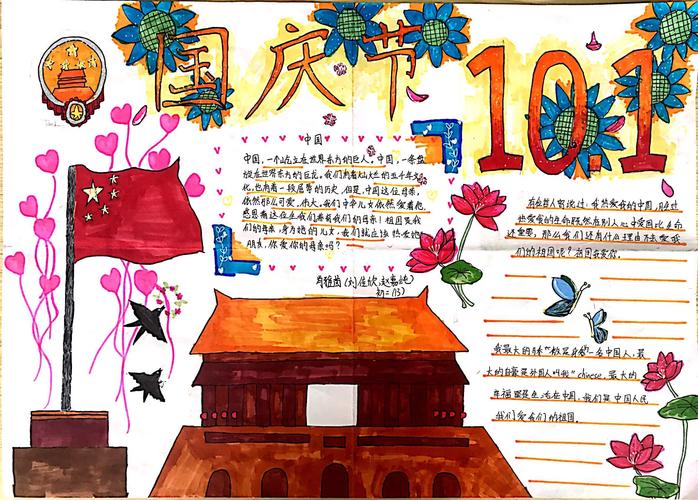 国庆节 10.1
中国
中国,一个屹立在世界东方的巨人,中国,一条盘
旋在世界东方的巨龙,我们有着灿烂的五千年文
化,也有着一段屈辱的历史,但是,中国这位母亲,
依然那么可爱,伟大,我们中华儿女依然爱着他,
感恩着这位生我们养育我们的母亲!祖国是我
们的母亲,身为她的儿女,我们就应该热爱她
朋友,你爱你的母亲吗?
初一(13)
有人曾说过:我热爱我的中国,胜过
热爱我的生命
还重要,那么我们还有什么理由不去爱我
们的祖国呢?
我最大的 就是身为一名中国人,最
大的自豪是外国人叫我"chinese,最大的
幸福要是生活在中国,我们是中国人民
我们爱我们的祖国。